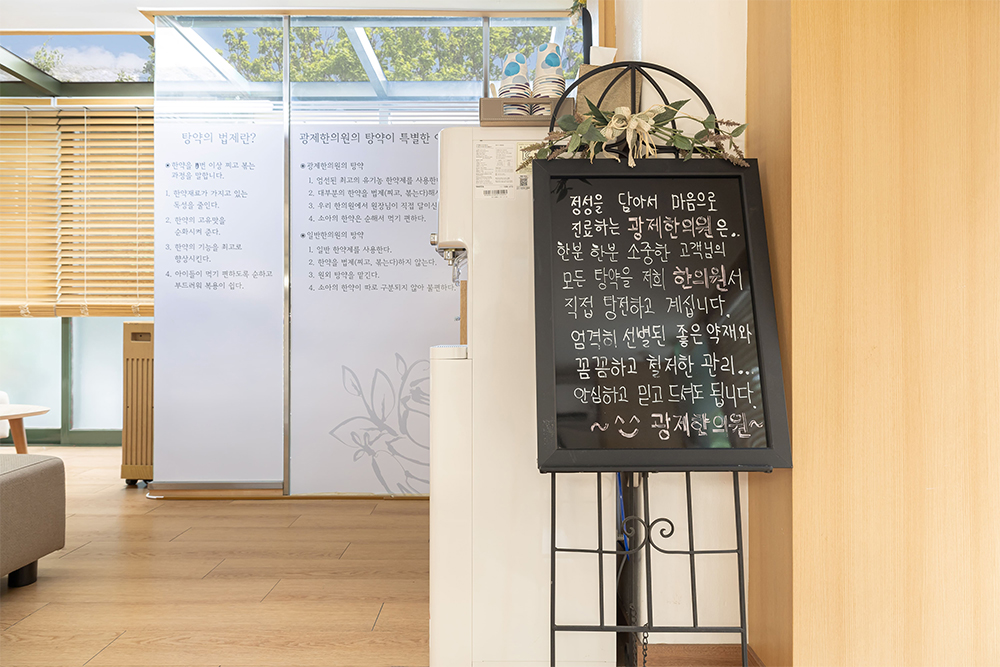 탕약의 법제란?
◉한약을 9번 이상 찌고 볶는
과정을 말합니다.
1. 한약재료가 가지고 있는
독성을 줄인다.
2. 한약의 고유맛을
순화시켜 준다.
3. 한약의 기능을 최고로
향상시킨다.
4. 아이들이 먹기 편하도록 순하고
부드러워 복용이 쉽다.
광제한의원의 탕약이 특별한
◉광제한의원의 탕약
1. 엄선된 최고의 유기농 한약제를 사용한
2. 대부분의 한약을 법제(찌고, 볶는다)해
3. 우리 한의원에서 원장님이 직접 달이신
4. 소아의 한약은 순해서 먹기 편하다.
◉일반한의원의 탕약
1. 일반 한약제를 사용한다.
2. 한약을 법제(찌고, 볶는다)하지 않는다.
3. 원외 탕약을 맡긴다.
4. 소아의 한약이 따로 구분되지 않아 불편하다.
정성을 담아서 마음으로
진료하는 광제한의원은..
한분 한분 소중한 고객님의
모든 탕약을 저희 한의원서
직접 탕전하고 계십니다.
엄격히 선별된 좋은약재와
꼼꼼하고 철저한 관리..
안심하고 믿고 드셔도 됩니다.
~^^ 광제한의원~